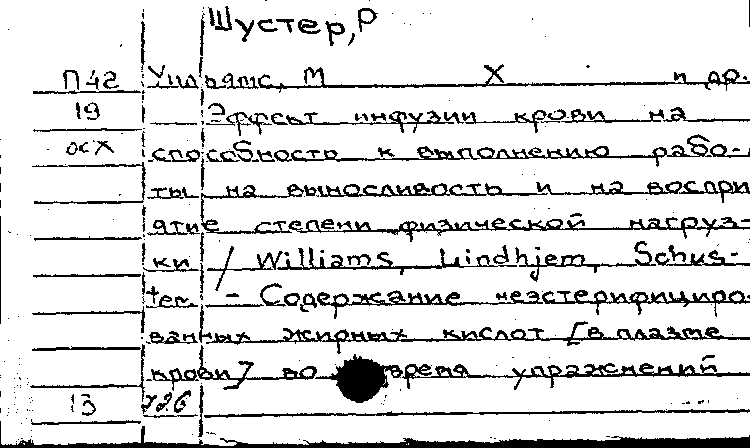 Шустер, Р
П42 Уильямс, М Х и др.
19 Эффект инфузии крови на
осх способность к выполнению рабо-
ты на выносливость и на воспри
ятие степени физической нагруз-
ки / Williams, Lindhjem, Schus-
ter. - Содержание неэстерифициро
ванных жирных кислот [в плазме
крови] во время упражнений
13 726